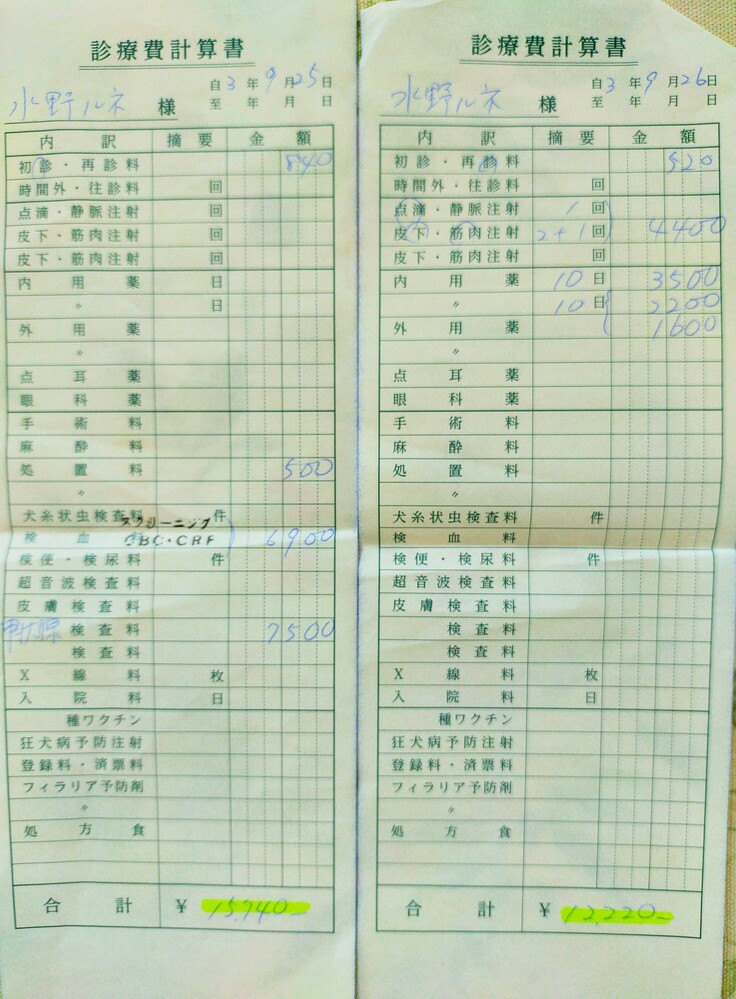 診療費計算書
自3年9月25日
水野ルネ 様 至 年 月 日
内訳 摘要 金額
初診・再診料 840
時間外・往診料 回
点滴・静脈注射 回
皮下・筋肉注射 回
皮下・筋肉注射 回
内用薬 日
〃 日
外用薬
〃
点耳薬
眼科薬
手術料
麻酔料
処置料 500
〃
犬糸状虫検査料 件
スクリーニング
検血料 CBC・CRP 6900
検便・検尿料 件
超音波検査料
皮膚検査料
甲状腺 検査料 7500
検査料
X線料 枚
入院料 日
種ワクチン
狂犬病予防注射
登録料・済票料
フィラリア予防剤
〃
処方食
合計 ¥ 15,740-
診療費計算書
自3年9月26日
水野ルネ 様 至 年 月 日
内訳 摘要 金額
初診・再診料 520
時間外・往診料 回
点滴・静脈注射 1回
皮下・筋肉注射 2+1回 4400
皮下・筋肉注射 回
内用薬 10日 3500
〃 10日 2200
外用薬 1600
〃
点耳薬
眼科薬
手術料
麻酔料
処置料
〃
犬糸状虫検査料 件
検血料
検便・検尿料 件
超音波検査料
皮膚検査料
検査料
検査料
X線料 枚
入院料 日
種ワクチン
狂犬病予防注射
登録料・済票料
フィラリア予防剤
〃
処方食
合計 ¥ 12,220-